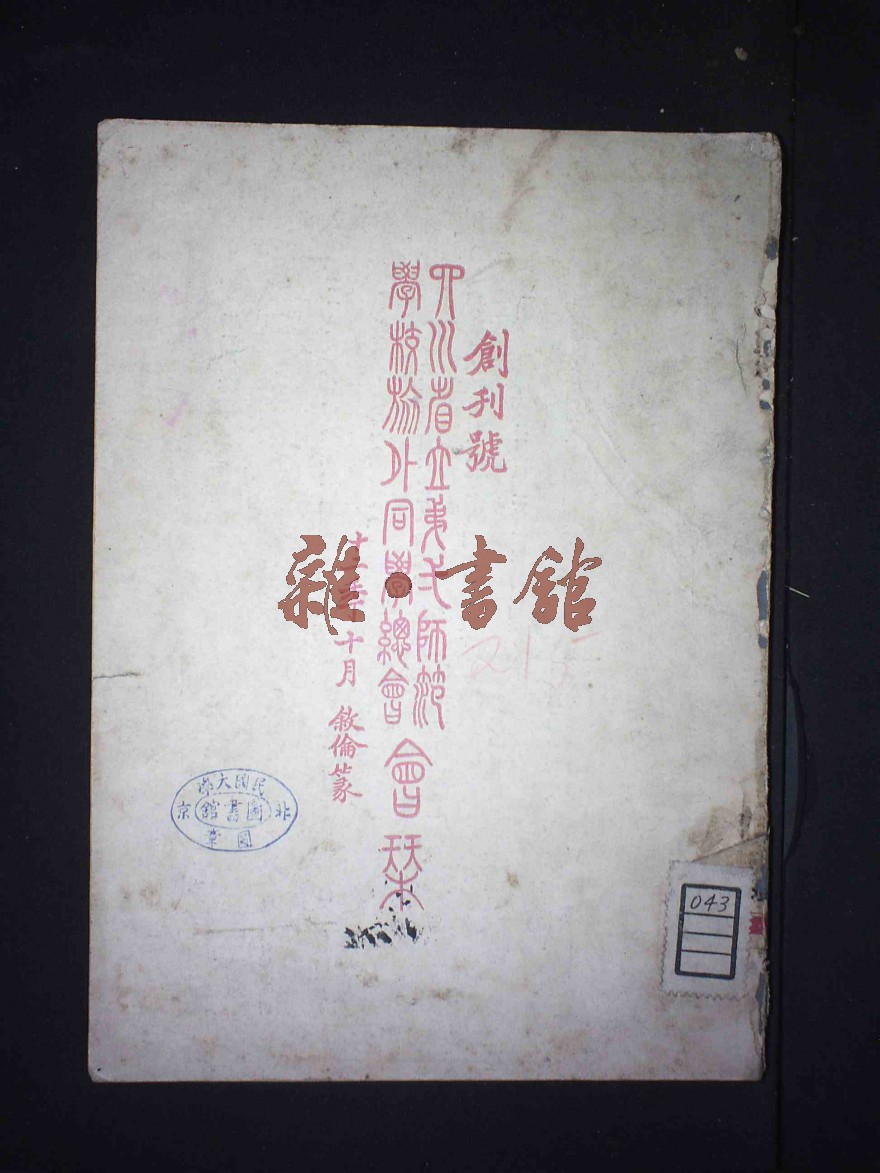 創刊號
四川省立弟師範
學校旅外同學總會
會栞
十月 敘倫篆
雜·書館
民國大學
北京
圖書館
圖章
043